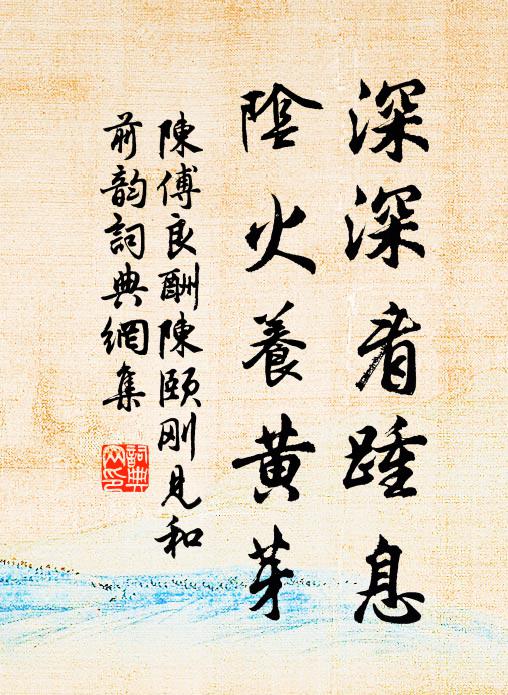 深深看踵息
陰火養黃芽
陳傅良酬陳頤刚見和
前韵詞典網集
詞典
网印